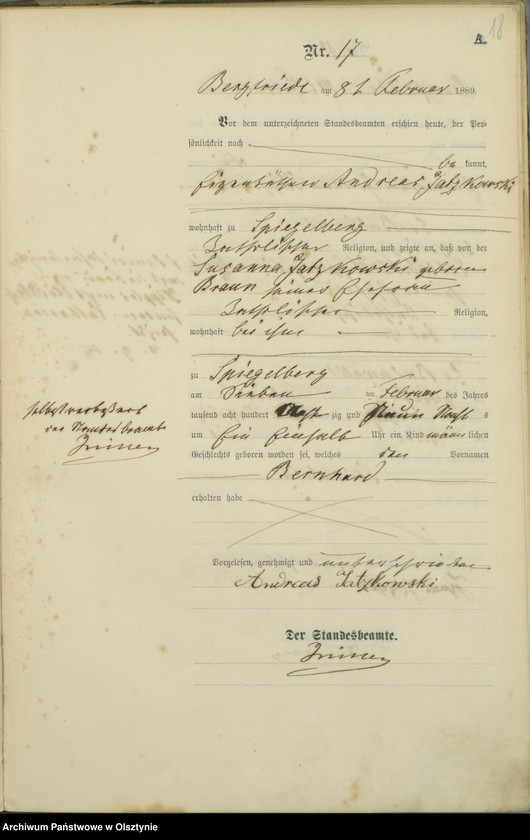 18
A.
Nr. 17
Bergfriede am 8t Februar 1889.
Vor dem unterzeichneten Standesbeamten erschien heute, der Per-
sönlichkeit nach
be kannt,
Eigenkäthner Andreas Jatzkowski
wohnhaft zu Spiegelberg
Katholischer Religion, und zeigte an, daß von der
Susanna Jatzkowski geborene
Braun seiner Ehefrau
Katholischer Religion,
wohnhaft bei ihm
zu Spiegelberg
am Sieben ten Februar des Jahres
tausend acht hundert Acht zig und Neun s
um Ein einhalb Uhr ein Kind männlichen
Geschlechts geboren worden sei, welches den Vornamen
Bernhard
erhalten habe
selbst verbessert
der Standesbeamte
Vorgelesen, genehmigt und unterschrieben
Andreas Jatzkowski
Der Standesbeamte.
Archiwum Państwowe w Olsztynie